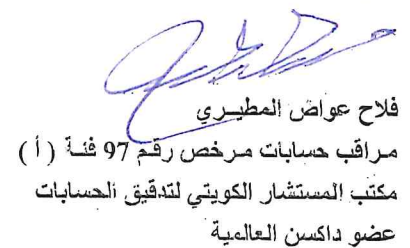 فلاح عواض المطيري
مراقب حسابات مرخص رقم 97 فئة ( أ )
مكتب المستشار الكويتي لتدقيق الحسابات
عضو داكسن العالمية